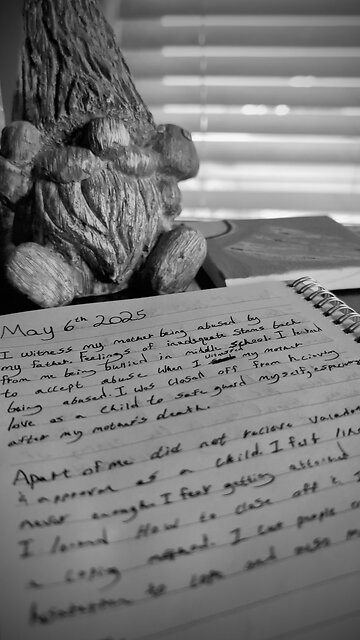 May 6th 2025
I witness my mother being abused by
my father. Feelings of inadequate stems back
from me being bullied in middle school. I learned
to accept abuse when I witness my mother
being abused. I was closed off from recieving
love as a child to safe guard myself, especially
after my mother's death.
Apart of me did not recieve
& approval as a child. I felt like
never enough. I fear getting attached
I learned How to close off
a coping I see people
to and